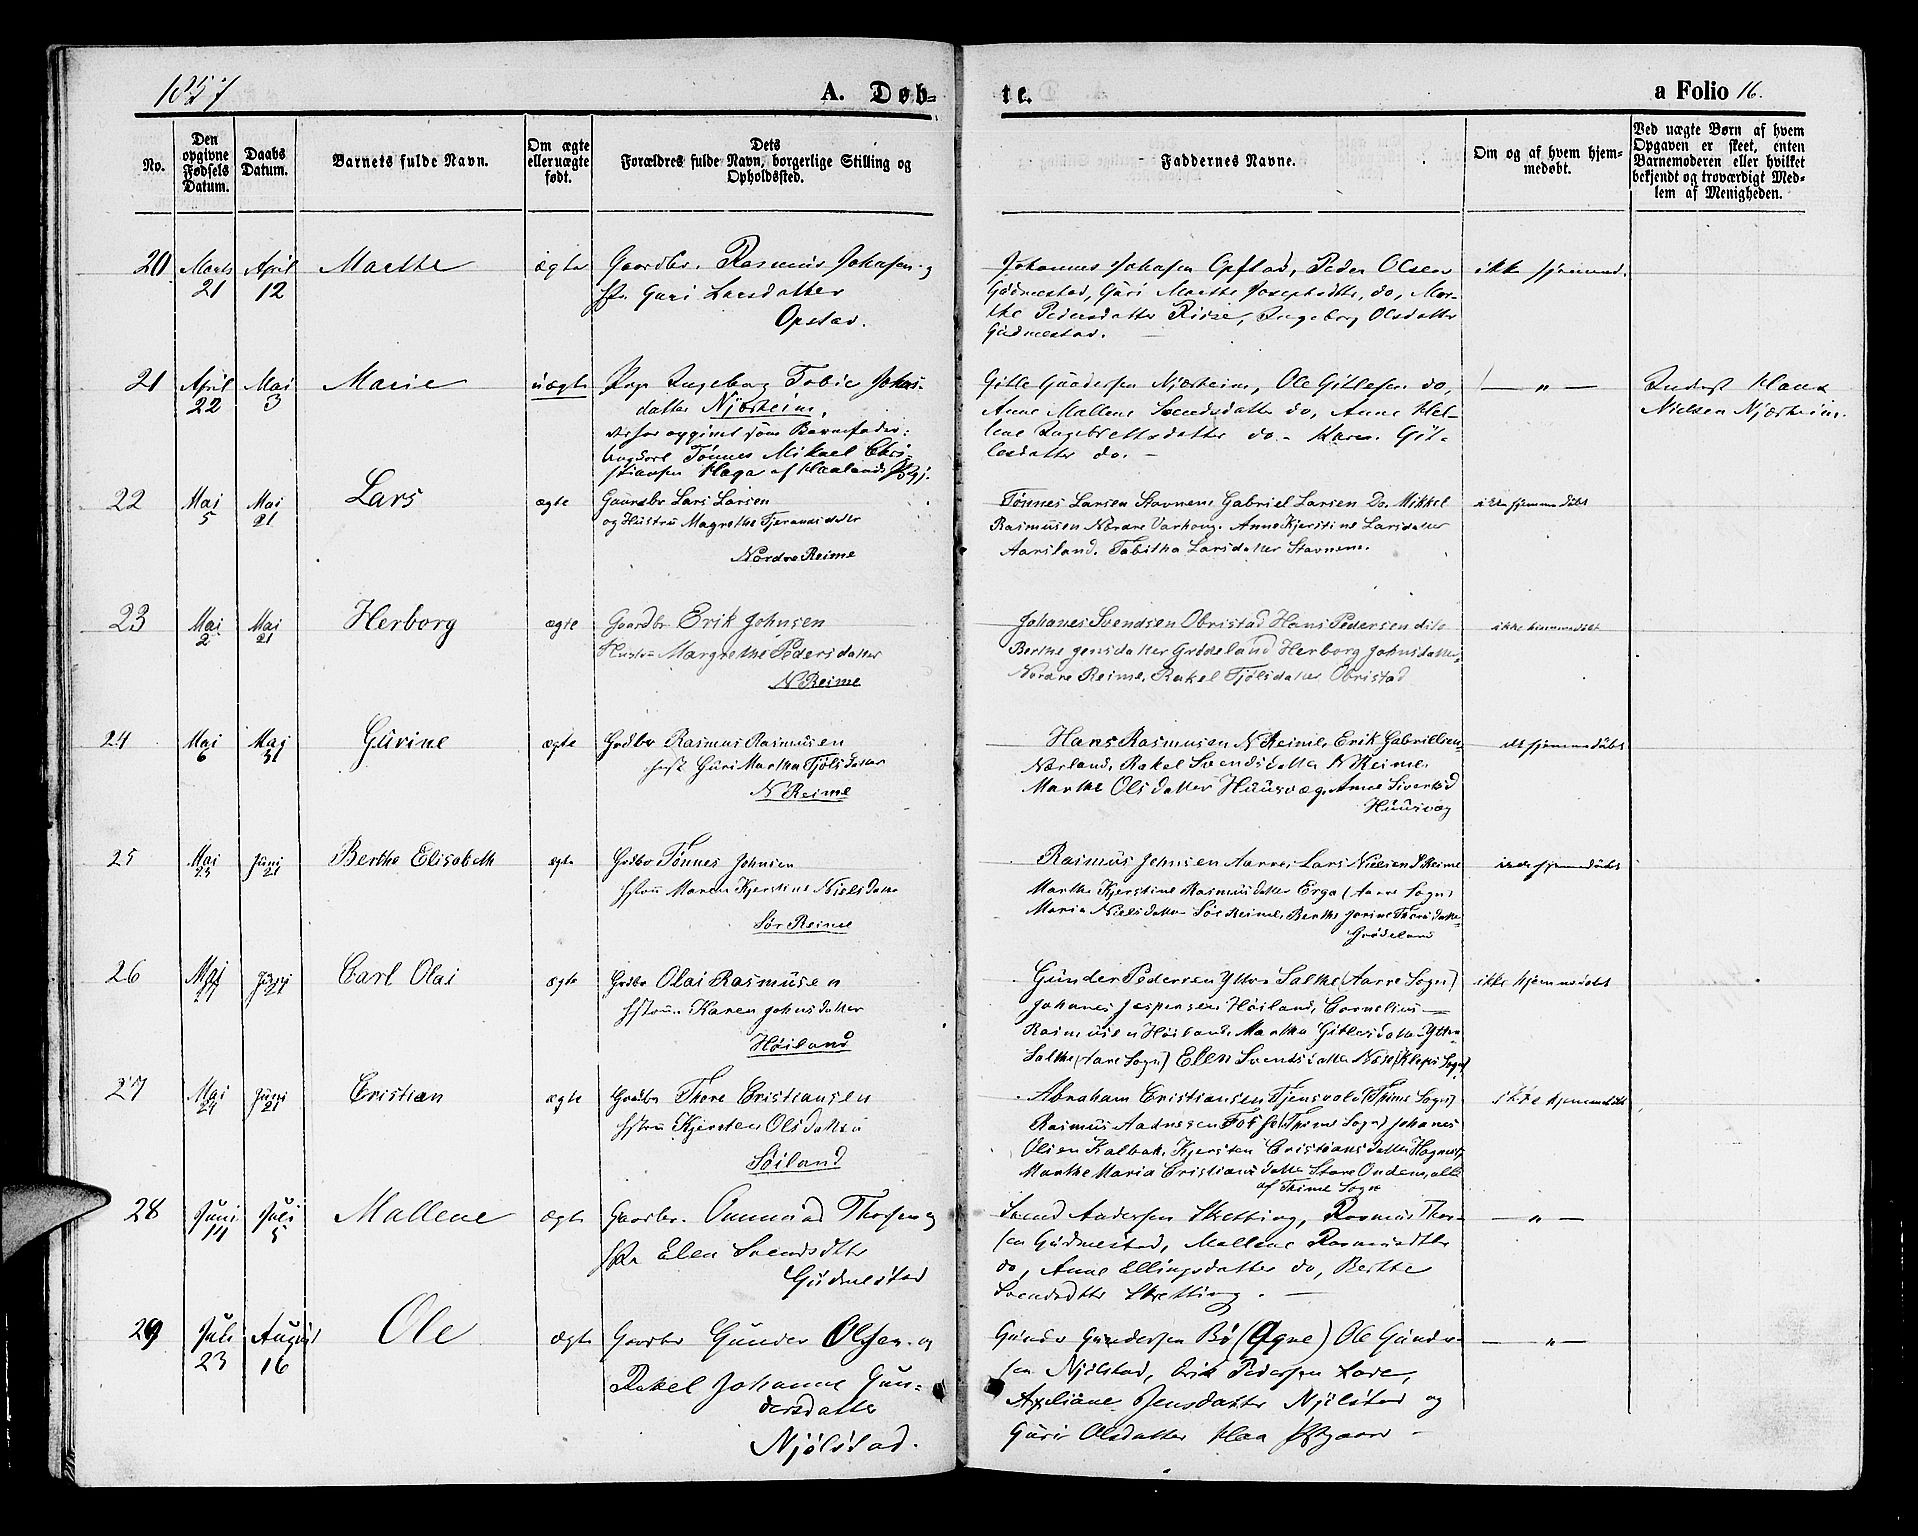 1857
A. Døb-
te.
a Folio 16.
No.
Den opgivne Fødsels Datum.
Daabs Datum.
Barnets fulde Navn.
Om ægte eller uægte født.
Dets Forældres fulde Navn, borgerlige Stilling og Opholdssted.
Faddernes Navne.
Om og af hvem hjemmedøbt.
Ved uægte Børn af hvem Opgaven er skeet, enten Barnemoderen eller hvilket bekjendt og troværdigt Medlem af Menigheden.
20 Marts 21 April 12 Marthe ægte Gaardbr. Rasmus Johnsen og
Guri Larsdatter
Opstad.
Johannes Johnsen Opstad, Peder Olsen
Gudmestad, Guri Marthe Josephsdtr, do, Mar-
the Pedersdatter Risse, Ingeborg Olsdatter
Gudmestad.
ikke hjemmed.
21 April 22 Mai 3 Marie uægte Pige Ingeborg Tobie Johns-
datter Njærheim,
derfor opgivet som Barnefader:
Ungkarl Tønnes Mikael Chri-
stiansen Haga af Haalands Pgj.
Gitle Gundersen Njærheim, Ole Gitlesen do,
Anne Mallene Svendsdatter do, Anne Hel-
lene Ingebretsdatter do. Karen Git-
lesdatter do.
— „ —
Inderst Hans
Nielsen Njærheim.
22 Mai 5 Mai 21 Lars ægte Gaardbr Lars Larsen
og Hustru Magrethe Tjerandsdatter
Nordre Reime
Tønnes Larsen Stavnem Gabriel Larsen Do. Mikkel
Rasmusen Nordre Varhoug. Anne Kjerstine Larsdatter
Aarsland. Tabitha Larsdatter Stavnem.
ikke hjemmedøbt
23 Mai 2 Mai 21 Herborg ægte Gaardbr Erik Johnsen
Hustru Margrethe Pedersdatter
N Reime
Johanes Svendsen Obristad Hans Pedersen dito
Berthe Jensdatter Grødeland Herborg Johnsdatter
Nordre Reime. Rakel Tjølsdatter Obristad
ikke hjemmedøbt
24 Mai 6 Mai 31 Gurine ægte Grdbr Rasmus Rasmusen
Hust Guri Martha Tjølsdatter
N Reime
Hans Rasmusen N Reime. Erik Gabrielsen
Nærland. Rakel Svendsdatter N Reime.
Marthe Olsdatter Huusvæg. Anne Sivertsd
Huusvæg
ikke hjemmedøbt
25 Mai 23 Juni 21 Berthe Elisabeth ægte Grdbr Tønnes Johnsen
Hstru Maren Kjerstine Nielsdatter
Sør Reime
Rasmus Johnsen Aarre, Lars Nielsen S Reime
Marthe Kjerstine Rasmusdatter Erga (Aarre Sogn)
Maria Nielsdatter Sør Reime, Berthe Jorine Thoresdatter
Grødeland
ikke hjemmedøbt
26 Mai 27 Juni 21 Carl Olai ægte Grdbr Olai Rasmusen
Hstru Karen Johnsdatter
Høiland
Gunder Pedersen Yttre Salthe (Aarre Sogn)
Johanes Jespersen Høiland, Cornelius
Rasmusen Høiland. Martha Gitlesdatter Yttre
Salthe (Aare Sogn) Elen Svendsdatter Næse (Klep Sogn)
ikke hjemmedøbt
27 Mai 27 Juni 21 Cristian ægte Grdbr Thore Cristiansen
Hstru Kjersten Olsdatter
Søiland
Abraham Cristiansen Tjensvold (Thime Sogn)
Rasmus Aadnesen Fosse (Thime Sogn) Johanes
Olsen Kalbak. Kjersten Cristiansdatter Hognes
Marthe Maria Cristiansdatter Store Undem, alle
af Thime Sogn
ikke hjemmedøbt
28 Juni 14 Juli 5 Mallene ægte Gaardbr. Ommund Thorsen og
Elen Svendsdtr
Gudmestad
Svend Andersen Skretting, Rasmus Thor-
sen Gudmestad, Mallene Rasmusdtr
do, Anne Ellingsdatter do, Berthe
Svendsdtr Skretting.
— „ —
29 Juli 23 August 16 Ole ægte Gaardbr Gunder Olsen og
Rakel Johanne Gun-
dersdatter
Njølstad.
Gunder Gundersen Bø (Ogne) Ole Gunder-
sen Njølstad, Erik Pedersen Lode,
Axeliane Jensdatter Njølstad og
Guri Olsdatter Haa Pstgaard
— „ —